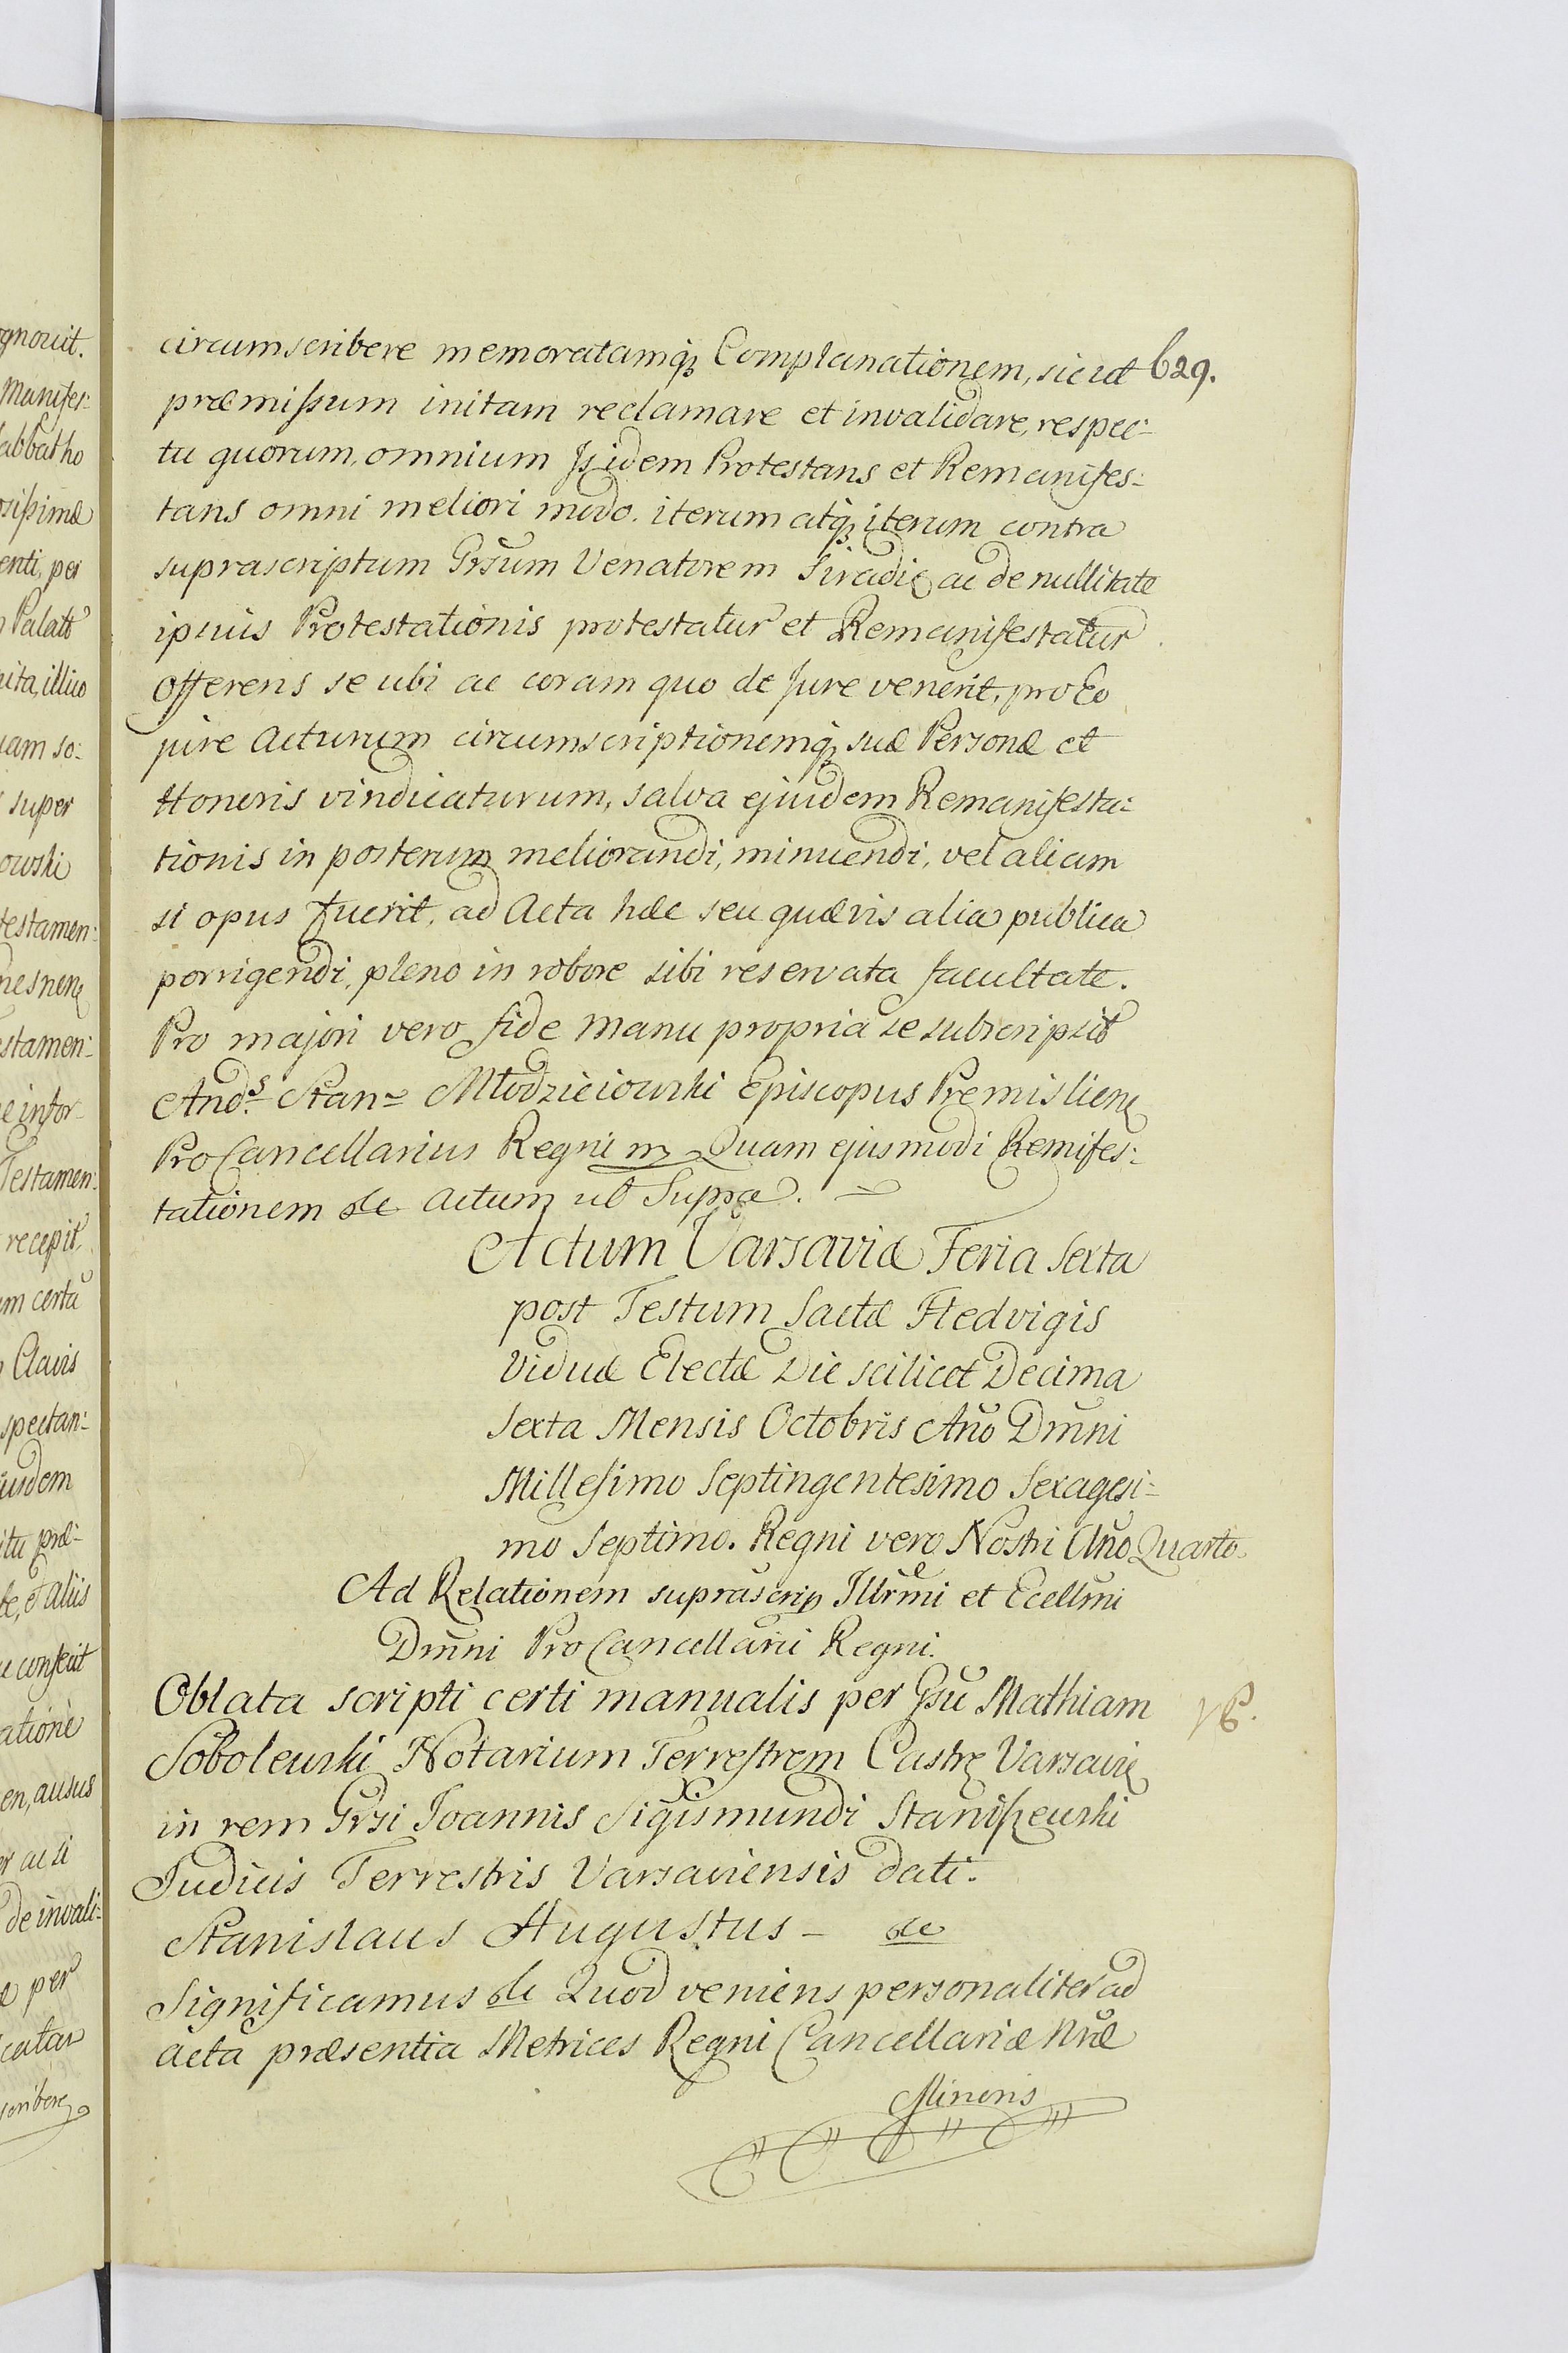 circumscribere memoratamq3 Complanationem, sicut 629.
præmissum initam reclamare et invalidare, respec-
tu quorum, omnium Isidem Protestans et Remanifes-
tans omni meliori modo. iterum atq3 iterum contra
suprascriptum Grsum Venatorem Siradię ac de nullitate
ipsius Protestationis protestatur et Remanifestatur
Offerens se ubi ac coram quo de Jure venerit, pro Eo
jure Acturum circumscriptionemq3 suæ Personæ et
Honoris vindicaturum, salva ejusdem Remanifesta-
tionis in posterum meliorandi, minuendi, vel aliam
si opus fuerit, ad Acta hæc seu quævis alia publica
porrigendi, pleno in robore sibi reservata facultate.
Pro majori vero fide manu propria se subscripsit
Andˢ Stan= Młodzieiowski Episcopus Premislienę
ProCancellarius Regni mp Quam ejusmodi Remifes-
tationem &c Actum ut Supra.
Actum Varsaviæ Feria Sexta
post Festum Sactæ Hedvigis
Viduæ Electæ Die scilicet Decima
Sexta Mensis Octobris Año Dm̃ni
Millesimo Septingentesimo Sexagesi-
mo Septimo. Regni vero Nostri Año Quarto.
Ad Relationem suprascrip Illrm̃i et Ecellm̃i
Dm̃ni ProCancellarii Regni.
Oblata scripti certi manualis per Gsũ Mathiam
Sobolewski Notarium Terrestrem Castrę Varsavię
in rem Grsi Joannis Sigismundi Staniszewski
Judicis Terrestris Varsaviensis dati.
Stanislaus Augustus - &c
Significamus &c Quod veniens personaliter ad
acta præsentia Metrices Regni Cancellariæ Nræ
Minoris